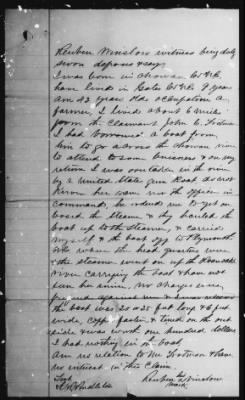 Reuben Winslow witness being duly
sworn deposes & says
I was born in Chowan Co N.C.
have lived in Gates Co N.C. 9 years
am 42 years old occupation a
farmer, I lived about 6 miles
from the Claimant John
I had borrowed a boat from
him to go across the Chowan river
to attend to some business & on my
return I was overtaken in the river
by a United States gun Boat I dont
know her name nor the officer in
command, he ordered me to get on
board the steamer & they hauled the
boat up to the steamer, & carried
myself & the boat off to Plymouth
the head quarters were
& the steamer went on up the Roanoake
river carrying the boat & have not
seen her since, no charges were
against me & I was released
the boat was 20 or 25 feet long & 6 feet
wide, copper fasten & tined on the out
side & was worth one hundred dollars
I had nothing in the boat,
am no relation to Mr & have
no interest in this Claim
Reuben his Winslow
mark
Test